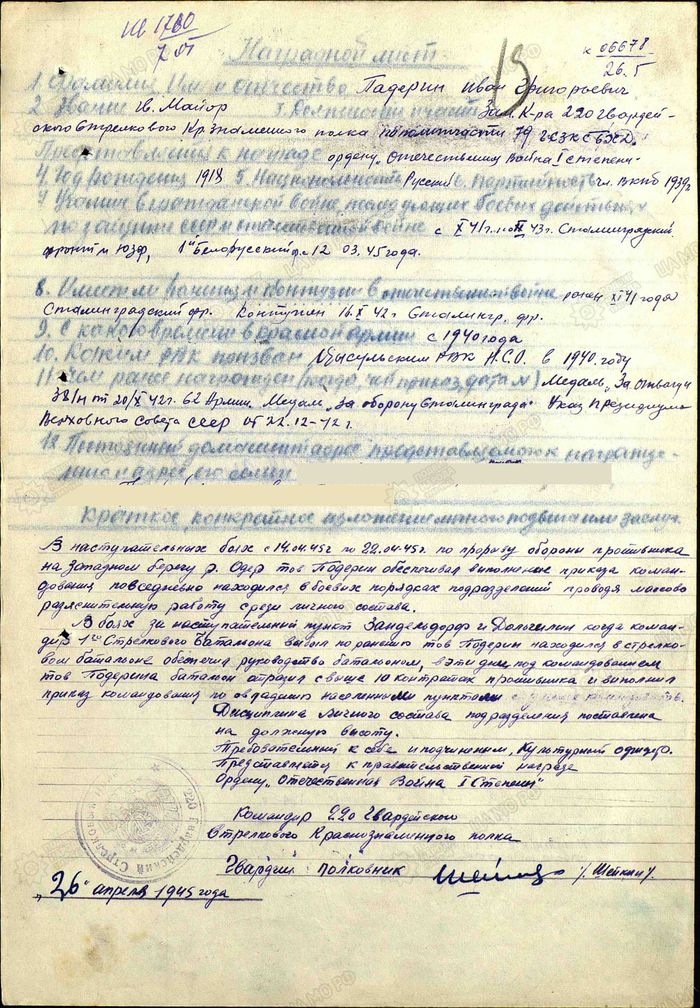 Ш 1780
7 VI
Наградной лист
19
к 06678
26.5
1 Фамилия, Имя и отчество Падерин Иван Григорьевич
2. Звание Гв. Майор 3. Должность и часть Зам. К-ра 220 Гвардей-
ского Стрелкового Кр.знаменного полка по политчасти 79 гв.
Представляется к награде ордену, Отечественная Война I степени-
4. Год рождения 1918 5. Национальность Русский 6. Партийность чл. ВКПб 1939г
7. Участие в гражданской войне последующих боевых действиях
по защите СССР и отечественной войне с XI 41г. по III 43г. Сталинградский
фронт и ЮЗФ, 1й Белорусский ф. с 12 03.45 года.
8. Имеет ли ранения и контузии в отечественной войне ранен XI 41 года
Сталинградский фр. Контузия 16.X 42 г Сталингр. фр.
9. С какого времени в красной армии с 1940 года
10. Каким РВК призван РВК Н.С.О. в 1940. году
11. Чем ранее награжден (когда, чей приказ, дата №) Медаль „За отвагу“
38/н от 20/X 42 г. 62 Армии. Медаль „За оборону Сталинграда“ Указ Президиума
Верховного Совета СССР от 22.12-42 г.
12 Постоянный домашний адрес представляемого к награжде-
нию и адрес его семьи
Краткое, конкретное изложение личного подвига или заслуг.
В наступательных боях с 14.04.45 г по 22.04.45 г. по прорыву обороны противника
на западном берегу р. Одер тов Падерин обеспечивал выполнение приказа коман-
дования повседневно находился в боевых порядках подразделений проводя массово
разъяснительную работу среди личного состава.
В боях за населенный пункт Зандельдорф и Долгелин когда коман-
дир 1го Стрелкового Батальона выбыл по ранению тов Падерин находился в стрелко-
вом батальоне обеспечил руководство батальоном, в эти дни под командованием
тов Падерина батальон отразил свыше 10 контратак противника и выполнил
приказ командования по овладению населенными пунктами
Дисциплина личного состава подразделения поставлена
на должную высоту.
Требовательный к себе и подчиненным, Культурный офицер.
Представляется к правительственной награде
Ордену „Отечественная Война I Степени“
Командир 220 Гвардейского
Стрелкового Краснознаменного полка
Гвардии полковник /. Шейкин /.
220 Гвардейский Стрелковый
„26“ апреля 1945 года